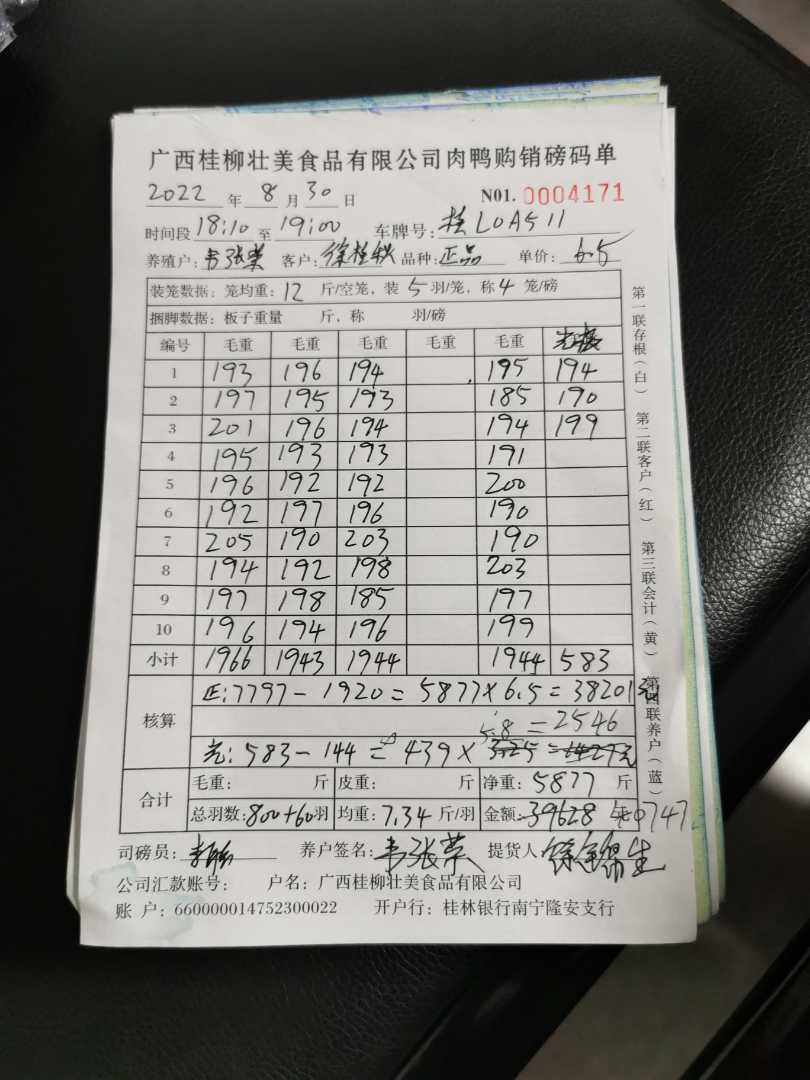 广西桂柳壮美食品有限公司肉鸭购销磅码单
2022 年 8 月 30 日 N01. 0004171
时间段 18:10 至 19:00 车牌号: 桂L0A511
养殖户: 韦张荣 客户: 徐桂秋 品种: 正品 单价: 6.5
装笼数据: 笼均重: 12 斤/空笼, 装 5 羽/笼, 称 4 笼/磅
捆脚数据: 板子重量 斤, 称 羽/磅
编号 毛重 毛重 毛重 毛重 毛重
1 193 196 194 195 194
2 197 195 193 185 190
3 201 196 194 194 199
4 195 193 193 191
5 196 192 192 200
6 192 197 196 190
7 205 190 203 190
8 194 192 198 203
9 197 198 185 197
10 196 194 196 199
小计 1966 1943 1944 1944 583
核算 正:7797-1920=5877×6.5=38201元
5.8=2546
光:583-144=439×3.25=1427元
合计 毛重: 斤 皮重: 斤 净重: 5877 斤
总羽数: 800+60 羽 均重: 7.34 斤/羽 金额: 39628 元 40747
司磅员: 养户签名: 韦张荣 提货人
公司汇款账号: 户名: 广西桂柳壮美食品有限公司
账 户: 660000014752300022 开户行: 桂林银行南宁隆安支行
第一联存根(白) 第二联客户(红) 第三联会计(黄) 第四联养户(蓝)